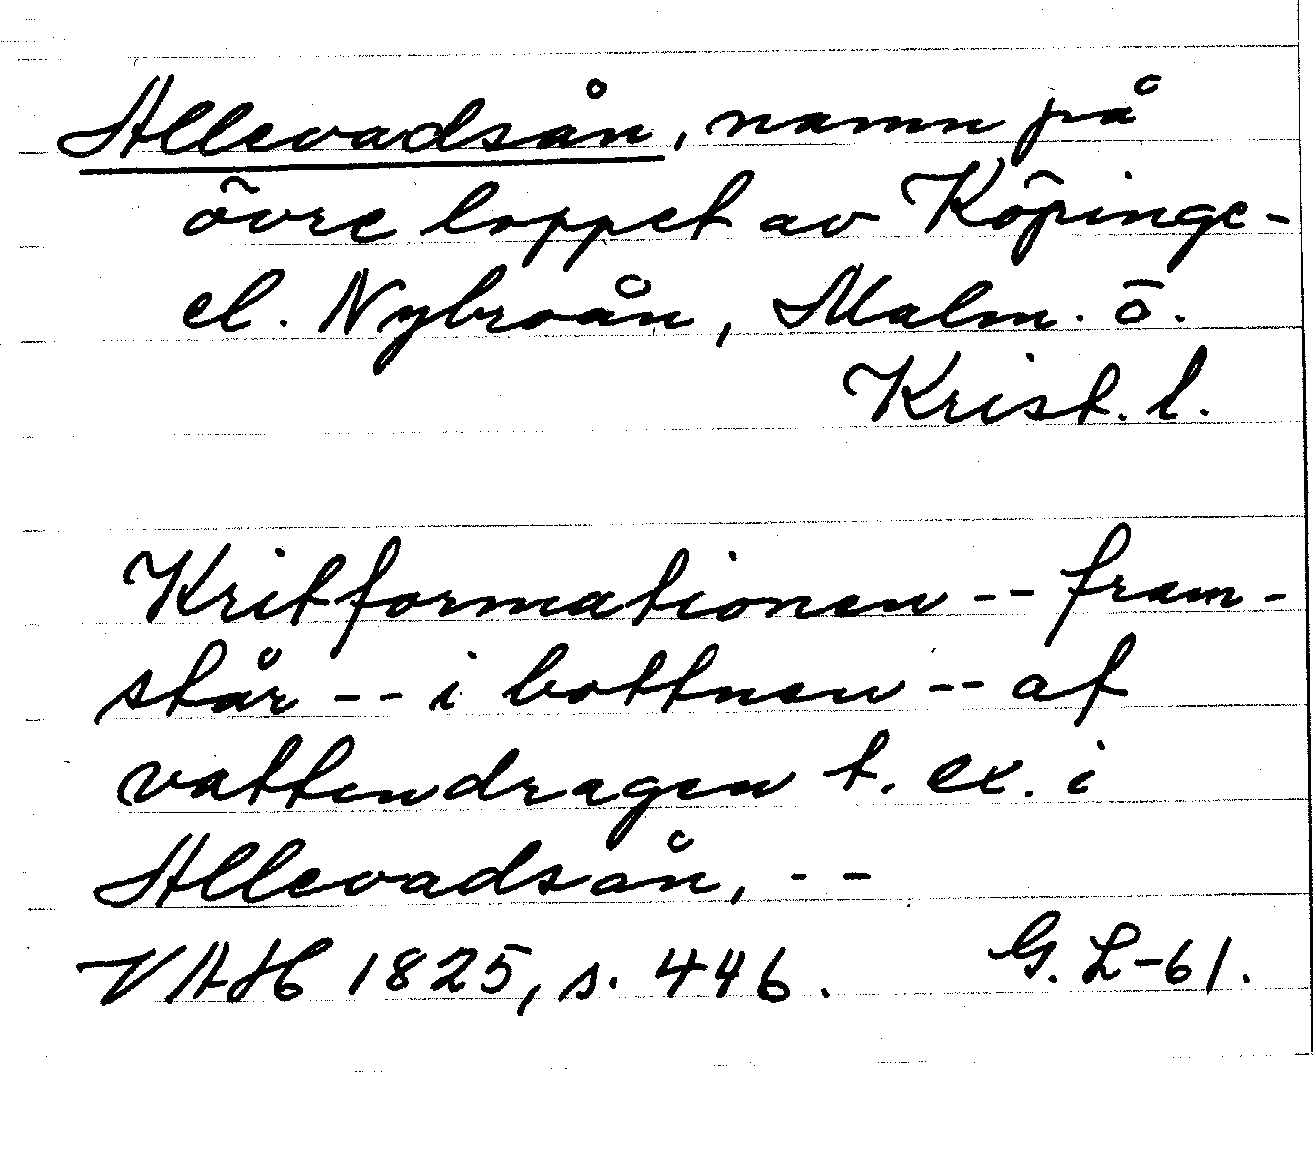 Allevadsån, namn på
övre loppet av Köpinge-
el. Nybroån, Malm. ö.
Krist. l.
Kritformationen -- fram-
står -- i bottnen -- af
vattendragen t. ex. i
Allevadsån, --
VAH 1825, s. 446. G. L-61.